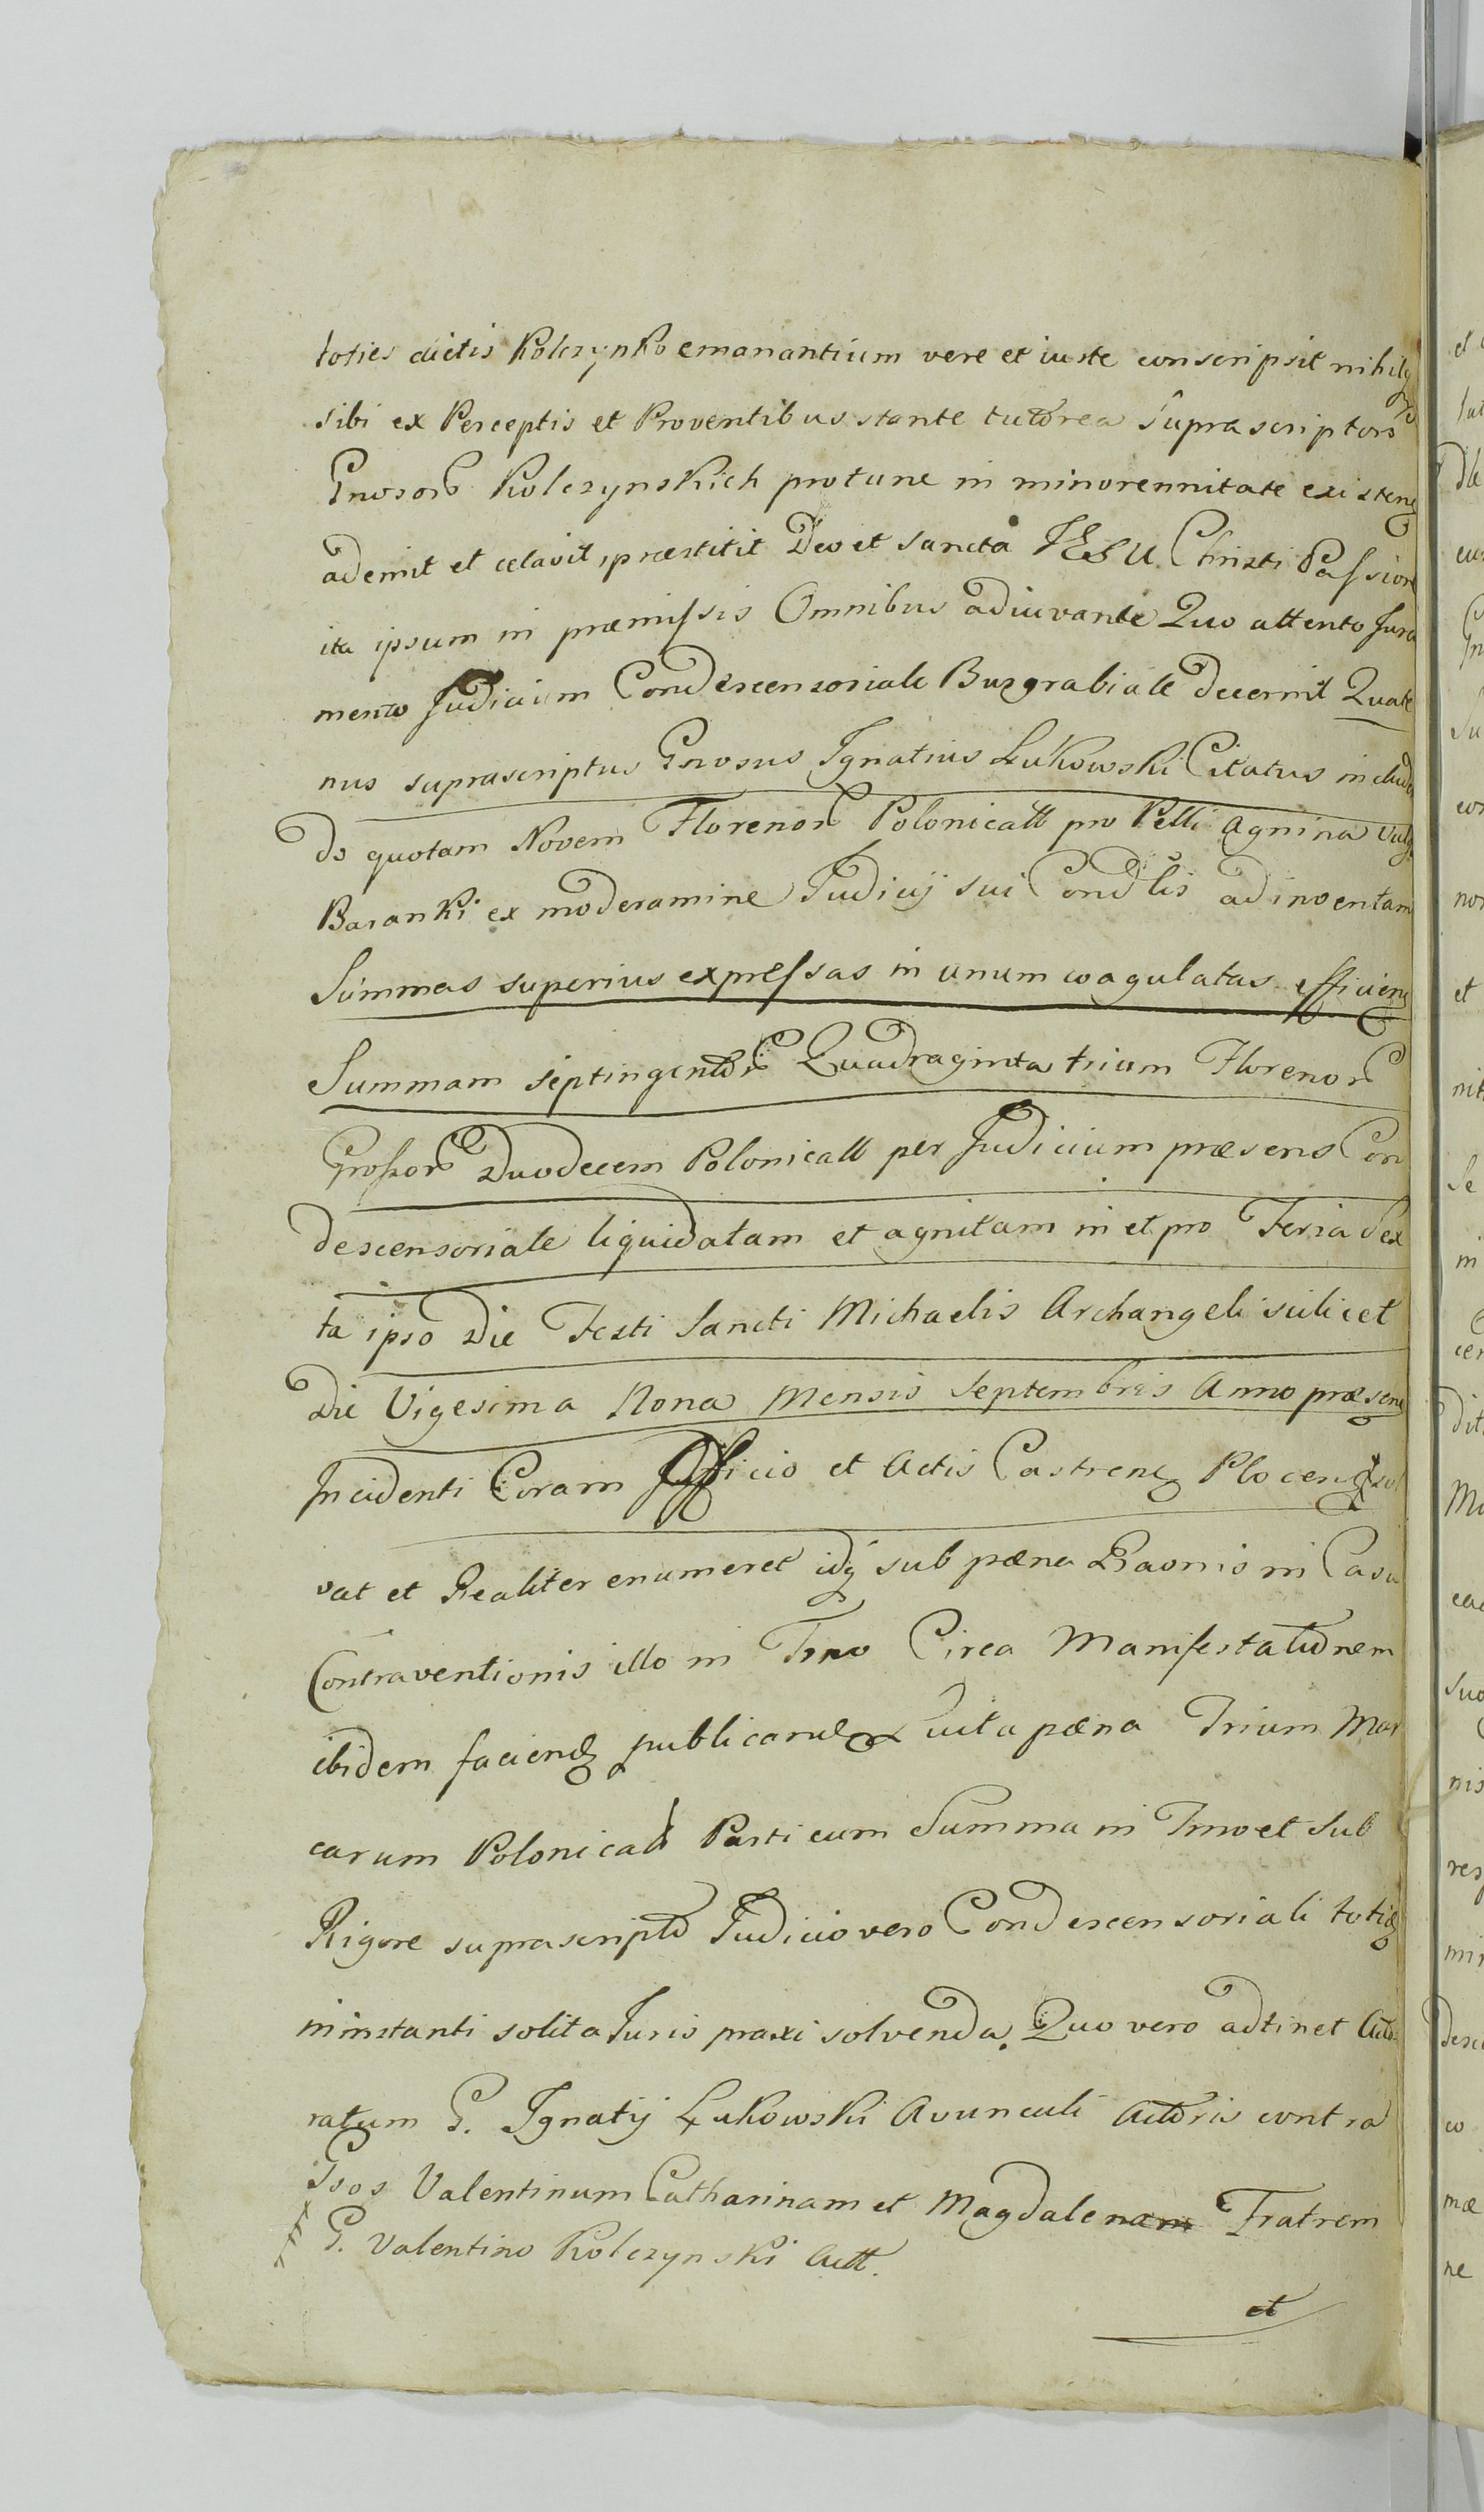 toties dictis Kolczynko emanantium vere et iuste conscripsit nihilq
sibi ex Perceptis et Proventibus stante tutorea suprascriptors
Gnosor Kolczynskich protunc in minorennitate existen
ademit et celavit, præstitit Deo et sancta JESU Christi Passione
ita ipsum in præmissis Omnibus adiuvante Quo attento Jura
mento Judicium Condescensoriale Burgrabiale decernit Quate
nus suprascriptus Gnosus Ignatius Łukowski Citatus includ
do quotam Novem Florenor Polonicall pro Pelli Agnina vulg
Baranki ex moderamine Judicij sui Condlis adinventam
Summas superius expressas in unum coagulatas efficien
Summam septingentor Quadraginta trium Florenor
Grossor Duodecem Polonicall per Judicium præsens Con
descensoriale liquidatam et agnitam in et pro Feria Sex
ta ipso Die Festi Sancti Michaelis Archangeli scilicet
Die Vigesima Nona Mensis Septembris Anno præsen
Incidenti Coram Officio et Actis Castren Plocen sol
vat et Realiter enumeret idq sub pæna Baonis in Casu
Contraventionis illo in Tmo Circa Manifestationem
ibidem faciend publicand luita pæna Trium Mar
carum Polonicall Parti cum Summa in Tmo et Sub
Rigore suprascripto Judicio vero Condescensoriali totid
in instanti solita Juris praxi solvenda. Quo vero adtinet Acto
ratum G. Ignatij Łukowski Avunculi Actoris contra
Gsos Valentinum Catharinam et Magdalenam Fratrem
G. Valentino Kolczynski Actt.
et